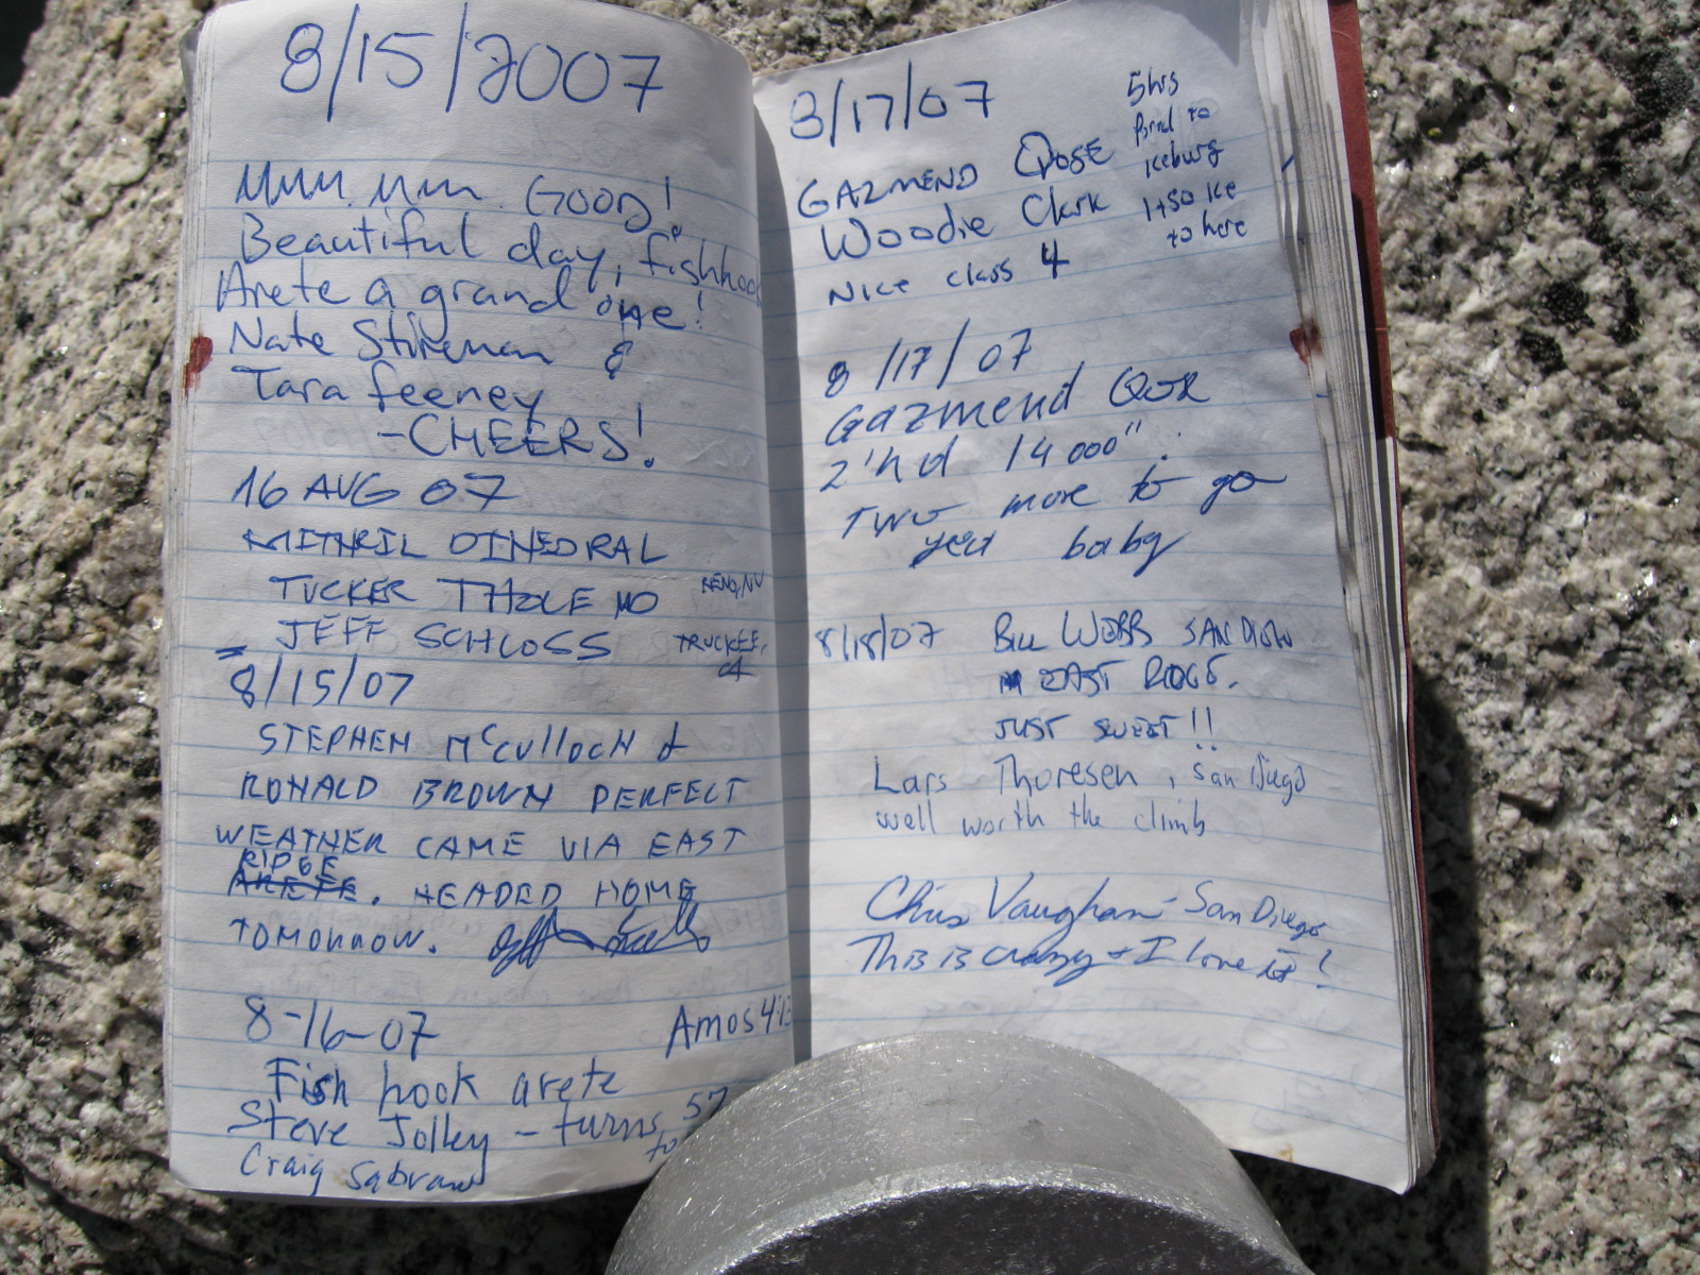 8/15/2007
Mmm. Mmm. GOOD!
Beautiful day, fishhook
Arete a grand one!
Nate Stireman &
Tara Feeney
-CHEERS!
16 AUG 07
MITHRIL DIHEDRAL
TUCKER RENO, NV
JEFF SCHLOSS TRUCKEE, CA
8/15/07
STEPHEN McCULLOCH &
RONALD BROWN PERFECT
WEATHER CAME VIA EAST
RIDGE
ARETE. HEADED HOME
TOMORROW.
8-16-07 Amos 4:13
Fish hook arete
Steve Jolley - turns 57
Craig
8/17/07
GAZMEND
Woodie Clark
Nice class 4
5hrs
to
Iceburg
1+50 Ice
to here
8/17/07
Gazmend
2'nd 14000".
TWO more to go
yea baby
8/18/07 Bill WEBB SAN DIEGO
EAST RIDGE.
JUST SWEET!!
Lars Thoresen, San Diego
well worth the climb
Chris Vaughan - San Diego
This is crazy + I love it!